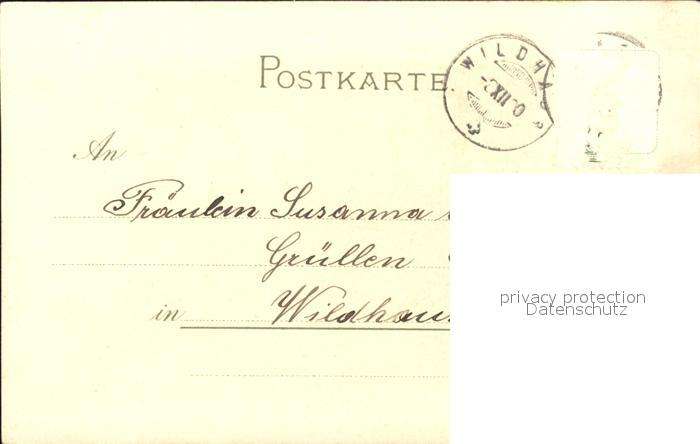 POSTKARTE
WILDHAUS
An
Fräulein Susanna
Grüllen
in Wildhaus
privacy protection
Datenschutz